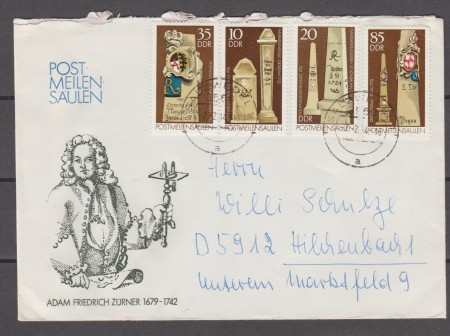 POST-
MEILEN-
SÄULEN
35 DDR
POSTMEILENSÄULEN
10 DDR
POSTMEILENSÄULEN
20
DDR
POSTMEILENSÄULEN
85
DDR
POSTMEILENSÄULEN
a
a
Herrn
Willi Schulze
D 5912 Hilchenbach 1
Unterem Marktsfeld 9
ADAM FRIEDRICH ZÜRNER 1679-1742